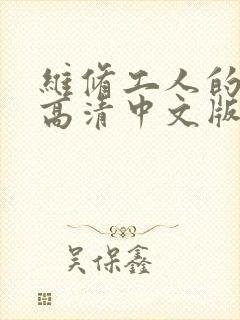 維脩工人的
高清中文版
吴保鑫